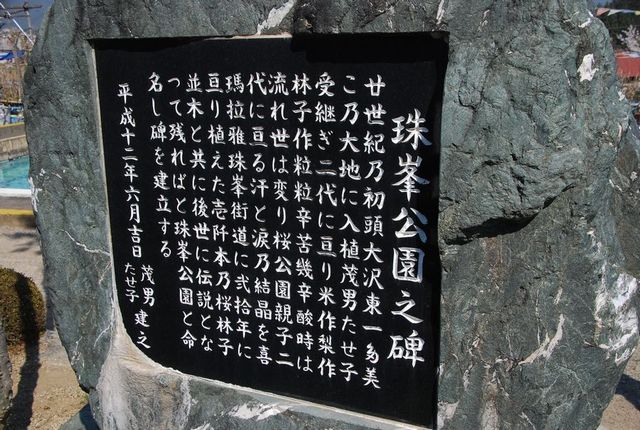 珠峯公園之碑
廿世紀乃初頭大沢東一多美
こ乃大地に入植茂男たせ子
受継ぎ二代に亘り米作梨作
林子作粒粒辛苦幾辛酸時は
流れ世は変り桜公園親子二
代に亘る汗と涙乃結晶を喜
瑪拉雅珠峯街道に弐拾年に
亘り植えた壱阡本乃桜林子
並木と共に後世に伝説とな
って残ればと珠峯公園と命
名し碑を建立する
平成十二年六月吉日
茂男
たせ子
建之